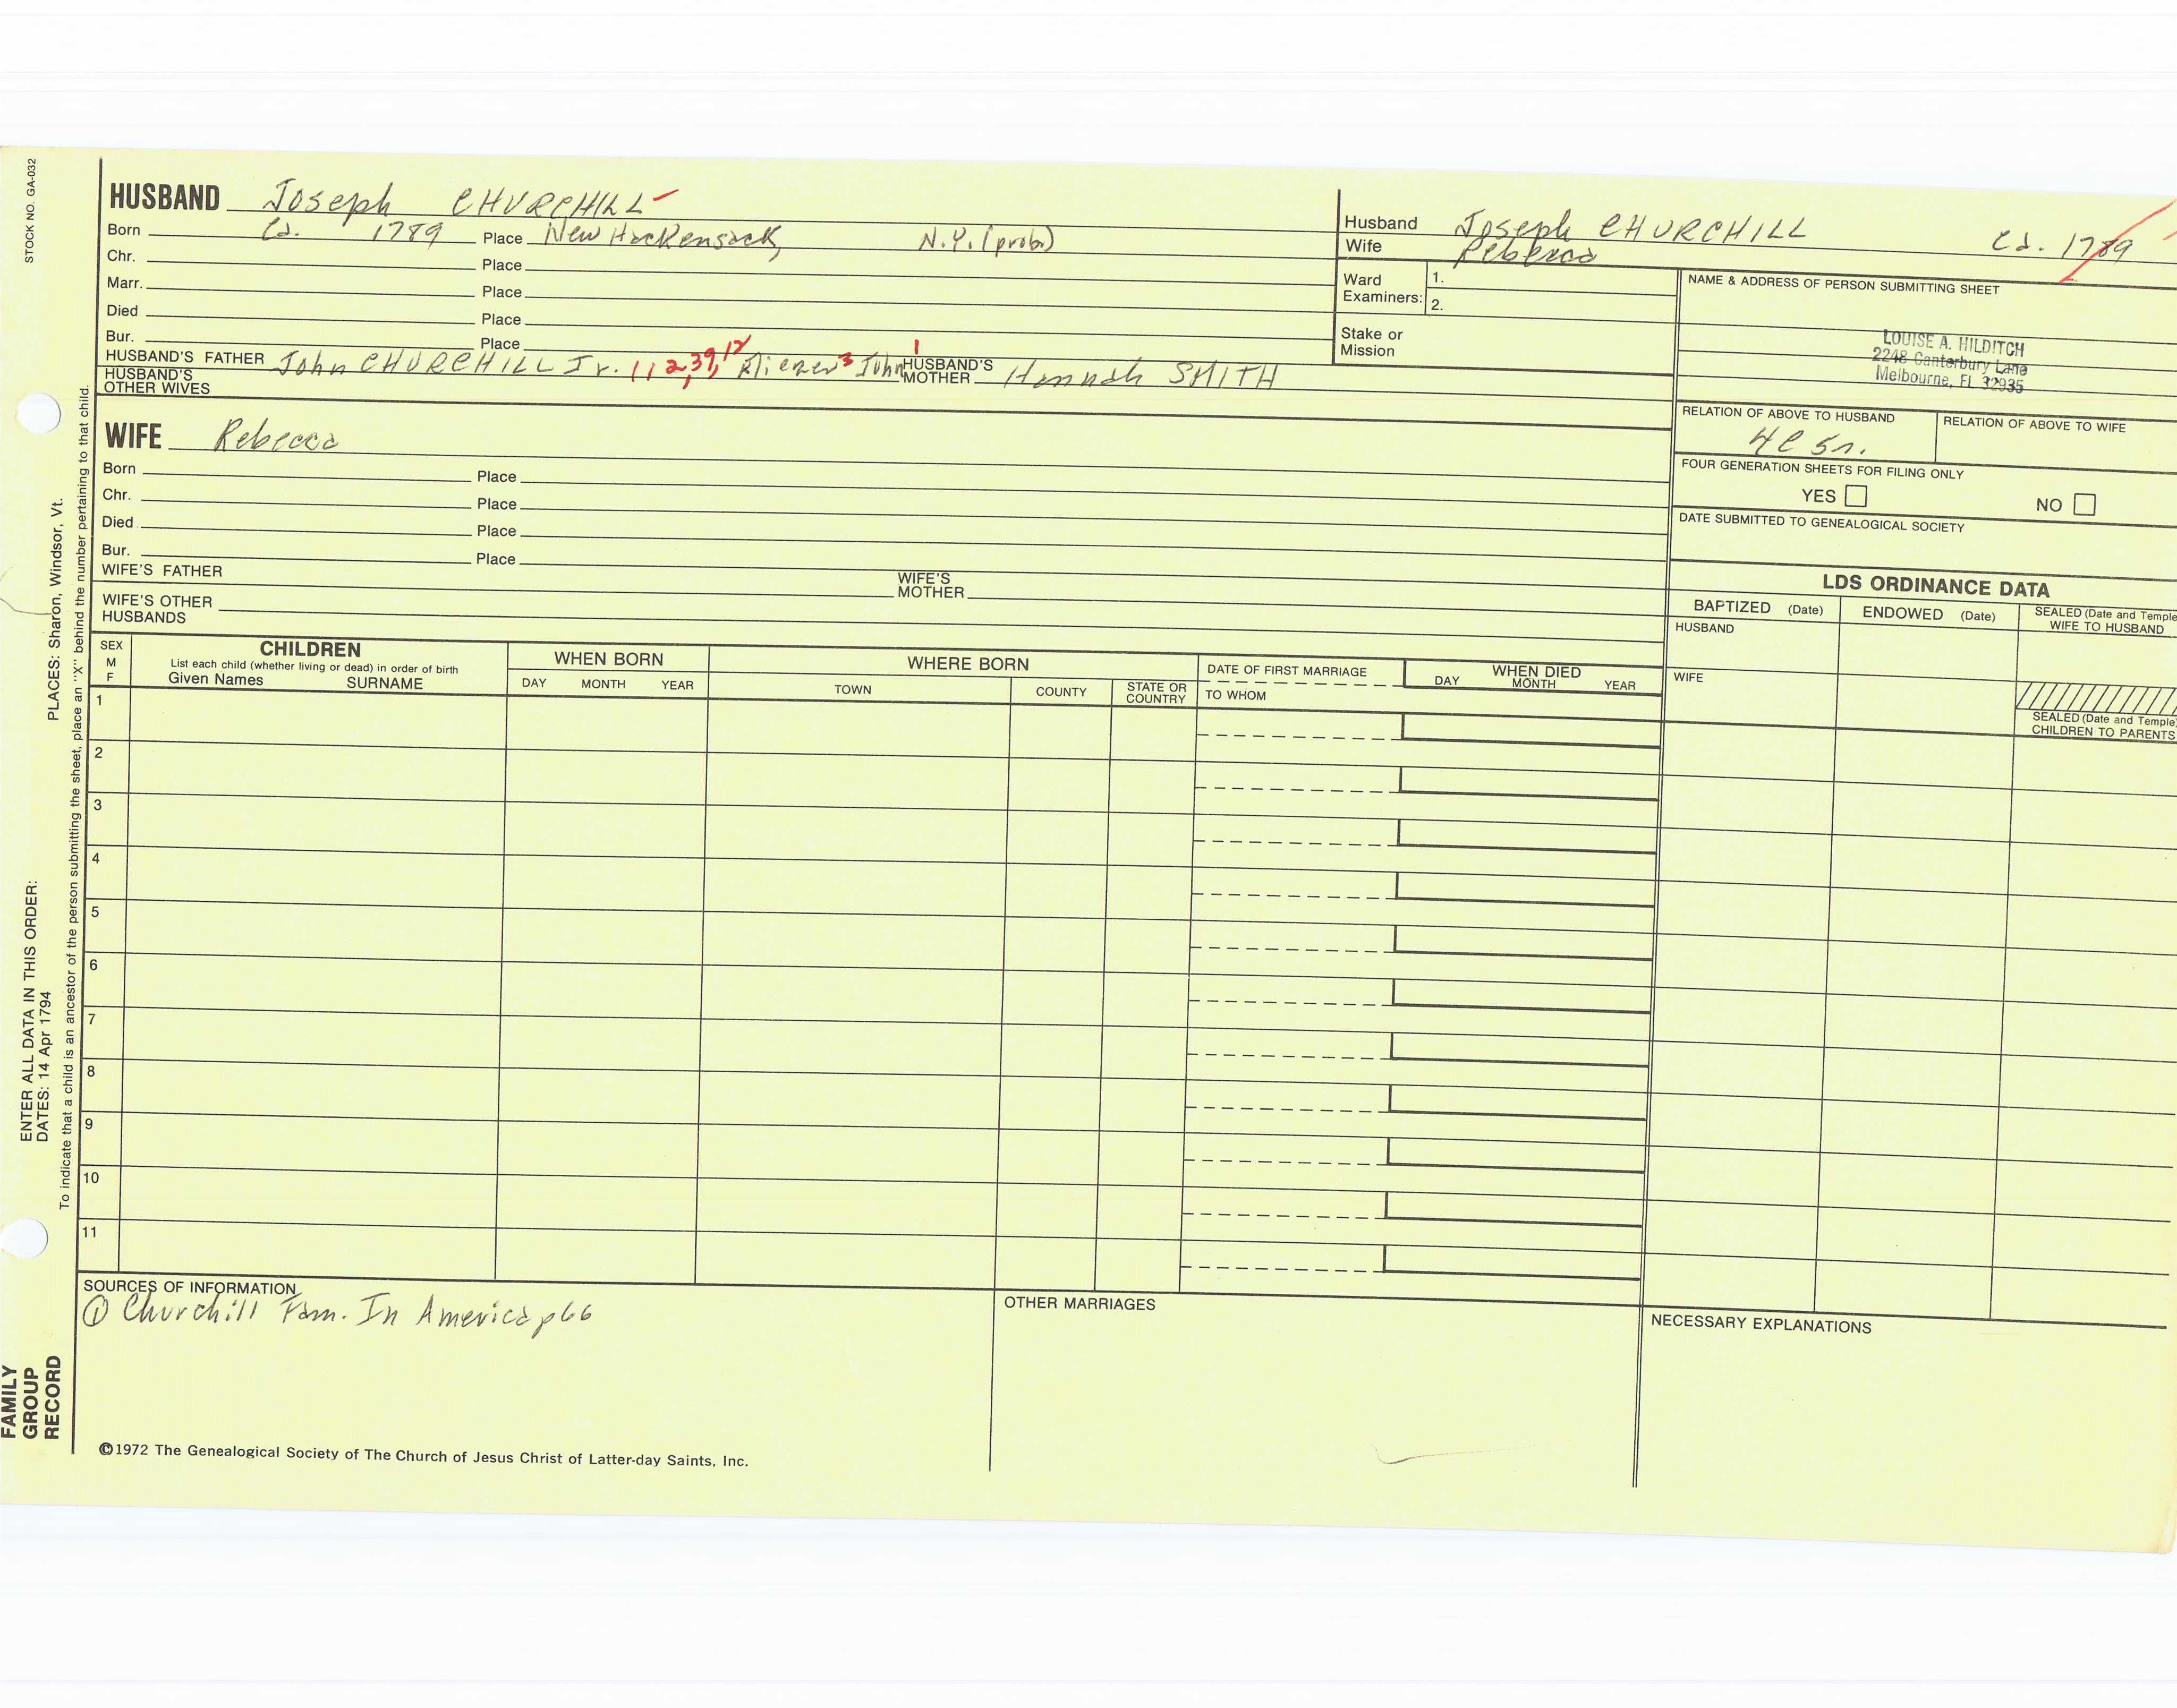 STOCK NO. GA-032
HUSBAND Joseph CHURCHILL
Born Ca. 1789 Place New Hackensack, N.Y. (prob.)
Chr. Place
Marr. Place
Died Place
Bur. Place
HUSBAND'S FATHER John CHURCHILL Jr. Eliezer 3 John 1 HUSBAND'S MOTHER Hannah SMITH
HUSBAND'S OTHER WIVES
WIFE Rebecca
Born Place
Chr. Place
Died Place
Bur. Place
WIFE'S FATHER WIFE'S MOTHER
WIFE'S OTHER HUSBANDS
Husband Joseph CHURCHILL Ca. 1789
Wife Rebecca
Ward Examiners: 1.
2.
Stake or Mission
NAME & ADDRESS OF PERSON SUBMITTING SHEET
LOUISE A. HILDITCH
2248 Canterbury Lane
Melbourne, FL 32935
RELATION OF ABOVE TO HUSBAND
4C 5r.
RELATION OF ABOVE TO WIFE
FOUR GENERATION SHEETS FOR FILING ONLY
YES NO
DATE SUBMITTED TO GENEALOGICAL SOCIETY
LDS ORDINANCE DATA
BAPTIZED (Date) ENDOWED (Date) SEALED (Date and Temple)
WIFE TO HUSBAND
HUSBAND
WIFE
SEALED (Date and Temple)
CHILDREN TO PARENTS
SEX
M
F
CHILDREN
List each child (whether living or dead) in order of birth
Given Names SURNAME
WHEN BORN
DAY MONTH YEAR
WHERE BORN
TOWN COUNTY STATE OR COUNTRY
DATE OF FIRST MARRIAGE
TO WHOM
WHEN DIED
DAY MONTH YEAR
1
2
3
4
5
6
7
8
9
10
11
SOURCES OF INFORMATION
① Churchill Fam. In America p66
OTHER MARRIAGES
NECESSARY EXPLANATIONS
©1972 The Genealogical Society of The Church of Jesus Christ of Latter-day Saints, Inc.
FAMILY
GROUP
RECORD
ENTER ALL DATA IN THIS ORDER:
DATES: 14 Apr 1794
PLACES: Sharon, Windsor, Vt.
To indicate that a child is an ancestor of the person submitting the sheet, place an "X" behind the number pertaining to that child.